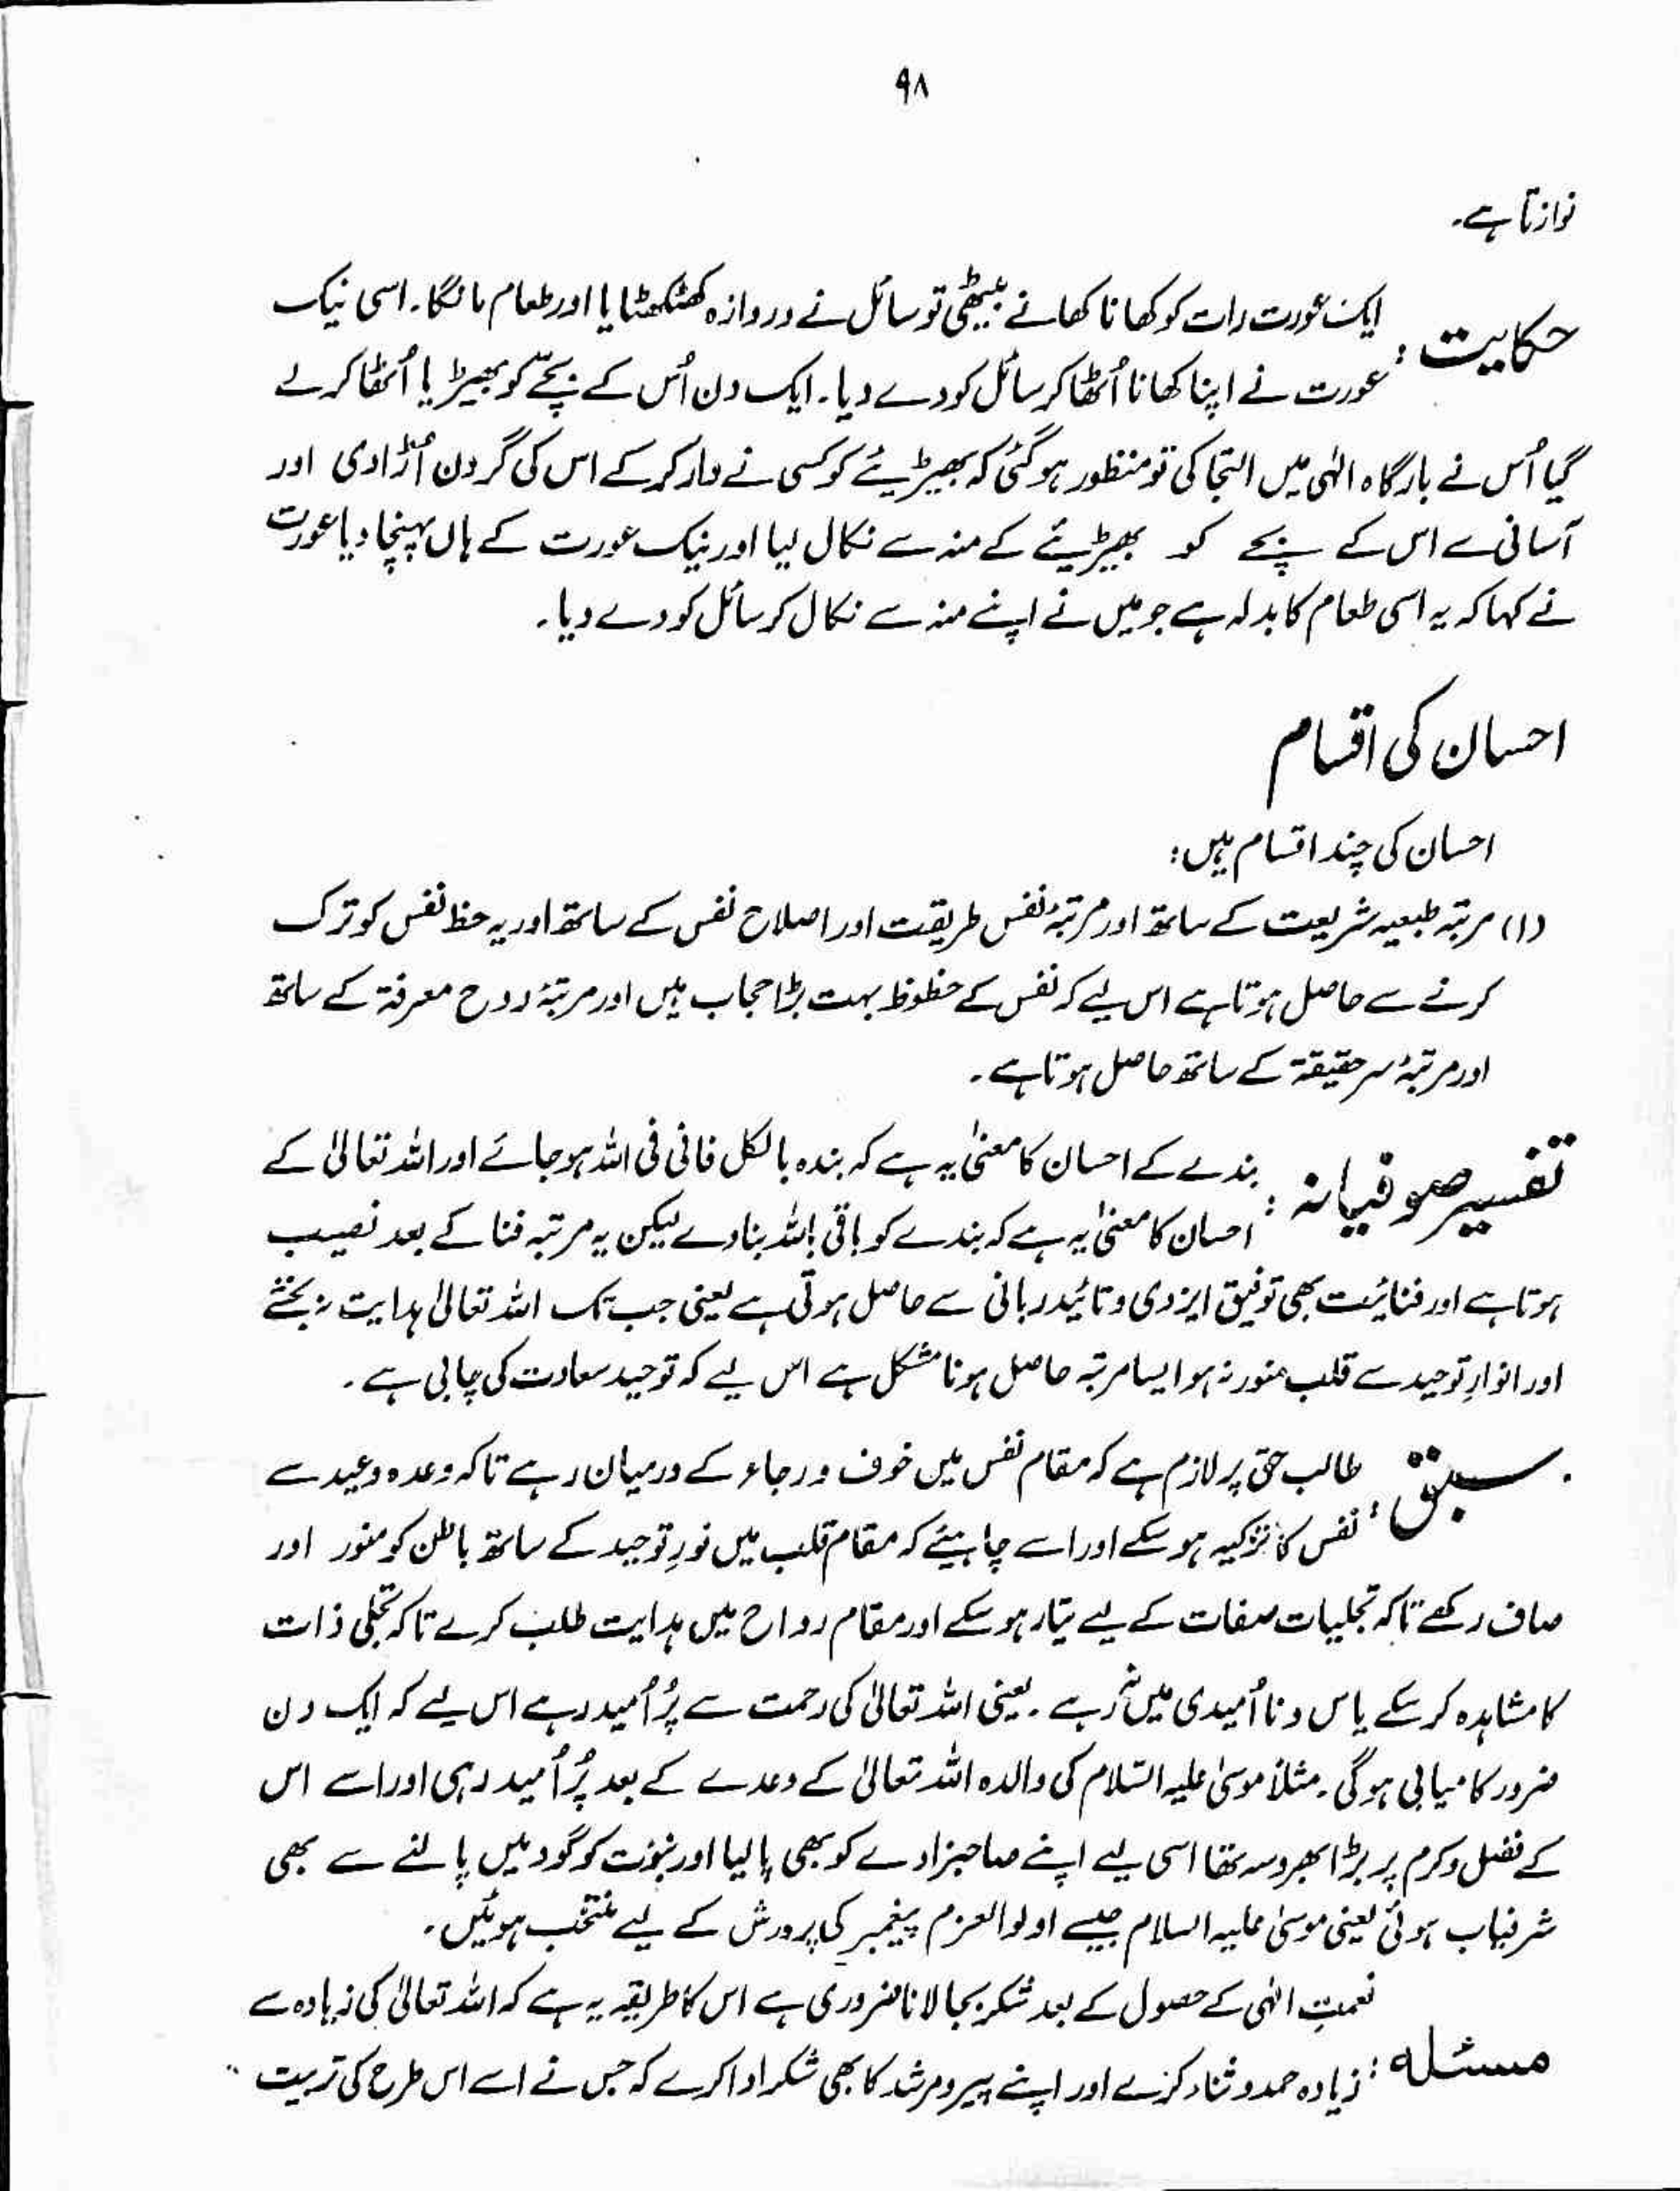 ۹۸
نوازتا ہے۔
حکایت : ایک عورت رات کو کھانا کھانے بیٹھی تو سائل نے دروازہ کھٹکھٹایا اور طعام مانگا۔ اسی نیک
عورت نے اپنا کھانا اُٹھا کر سائل کو دے دیا۔ ایک دن اُس کے بچّے کو بھیڑیا اُٹھا کر لے
گیا اُس نے بارگاہ الٰہی میں التجا کی تو منظور ہو گئی کہ بھیڑیئے کو کسی نے وار کر کے اس کی گردن اُڑا دی اور
آسانی سے اس کے بچے کو بھیڑیئے کے منہ سے نکال لیا اور نیک عورت کے ہاں پہنچا دیا عورت
نے کہا کہ یہ اسی طعام کا بدلہ ہے جو میں نے اپنے منہ سے نکال کر سائل کو دے دیا۔
احسان کی اقسام
احسان کی چند اقسام ہیں:
(۱) مرتبہ طبعیہ شریعت کے ساتھ اور مرتبۂ نفس طریقت اور اصلاح نفس کے ساتھ اور یہ حظ نفس کو ترک
کرنے سے حاصل ہوتا ہے اس لیے کہ نفس کے حظوظ بہت بڑا حجاب ہیں اور مرتبۂ روح معرفۃ کے ساتھ
اور مرتبۂ سر حقیقۃ کے ساتھ حاصل ہوتا ہے۔
تفسیر صوفیانہ : بندے کے احسان کا معنیٰ یہ ہے کہ بندہ بالکل فانی فی اللہ ہو جائے اور اللہ تعالیٰ کے
احسان کا معنیٰ یہ ہے کہ بندے کو باقی باللہ بنا دے لیکن یہ مرتبہ فنا کے بعد نصیب
ہوتا ہے اور فنائیت بھی توفیق ایزدی و تائید ربانی سے حاصل ہوتی ہے یعنی جب تک اللہ تعالیٰ ہدایت نہ بخشے
اور انوارِ توحید سے قلب منور نہ ہو ایسا مرتبہ حاصل ہونا مشکل ہے اس لیے کہ توحید سعادت کی چابی ہے۔
سبق : طالب حق پر لازم ہے کہ مقام نفس میں خوف و رجاء کے درمیان رہے تاکہ وعدہ وعید سے
نفس کا تزکیہ ہو سکے اور اسے چاہیئے کہ مقام قلب میں نورِ توحید کے ساتھ باطن کو منور اور
صاف رکھے تاکہ تجلیات صفات کے لیے تیار ہو سکے اور مقام رواح میں ہدایت طلب کرے تاکہ تجلی ذات
کا مشاہدہ کر سکے یاس و نا اُمیدی میں نہ رہے۔ یعنی اللہ تعالیٰ کی رحمت سے پُر اُمید رہے اس لیے کہ ایک دن
ضرور کامیابی ہو گی۔ مثلاً موسیٰ علیہ السّلام کی والدہ اللہ تعالیٰ کے وعدے کے بعد پُر اُمید رہی اور اسے اس
کے فضل و کرم پر بڑا بھروسہ تھا اسی لیے اپنے صاحبزادے کو بھی پا لیا اور نبوّت کو گود میں پالنے سے بھی
شرفیاب ہوئی یعنی موسیٰ علیہ السلام جیسے اولوالعزم پیغمبر کی پرورش کے لیے منتخب ہوئیں۔
مسئلہ : نعمتِ الٰہی کے حصول کے بعد شکر بجا لانا ضروری ہے اس کا طریقہ یہ ہے کہ اللہ تعالیٰ کی زیادہ سے
زیادہ حمد و ثناء کرے اور اپنے پیر و مرشد کا بھی شکر ادا کرے کہ جس نے اسے اس طرح کی تربیت